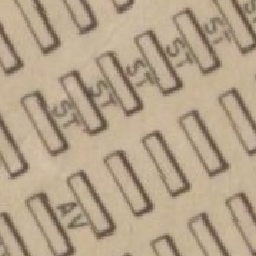 ST
ST
ST
ST
ST
AV